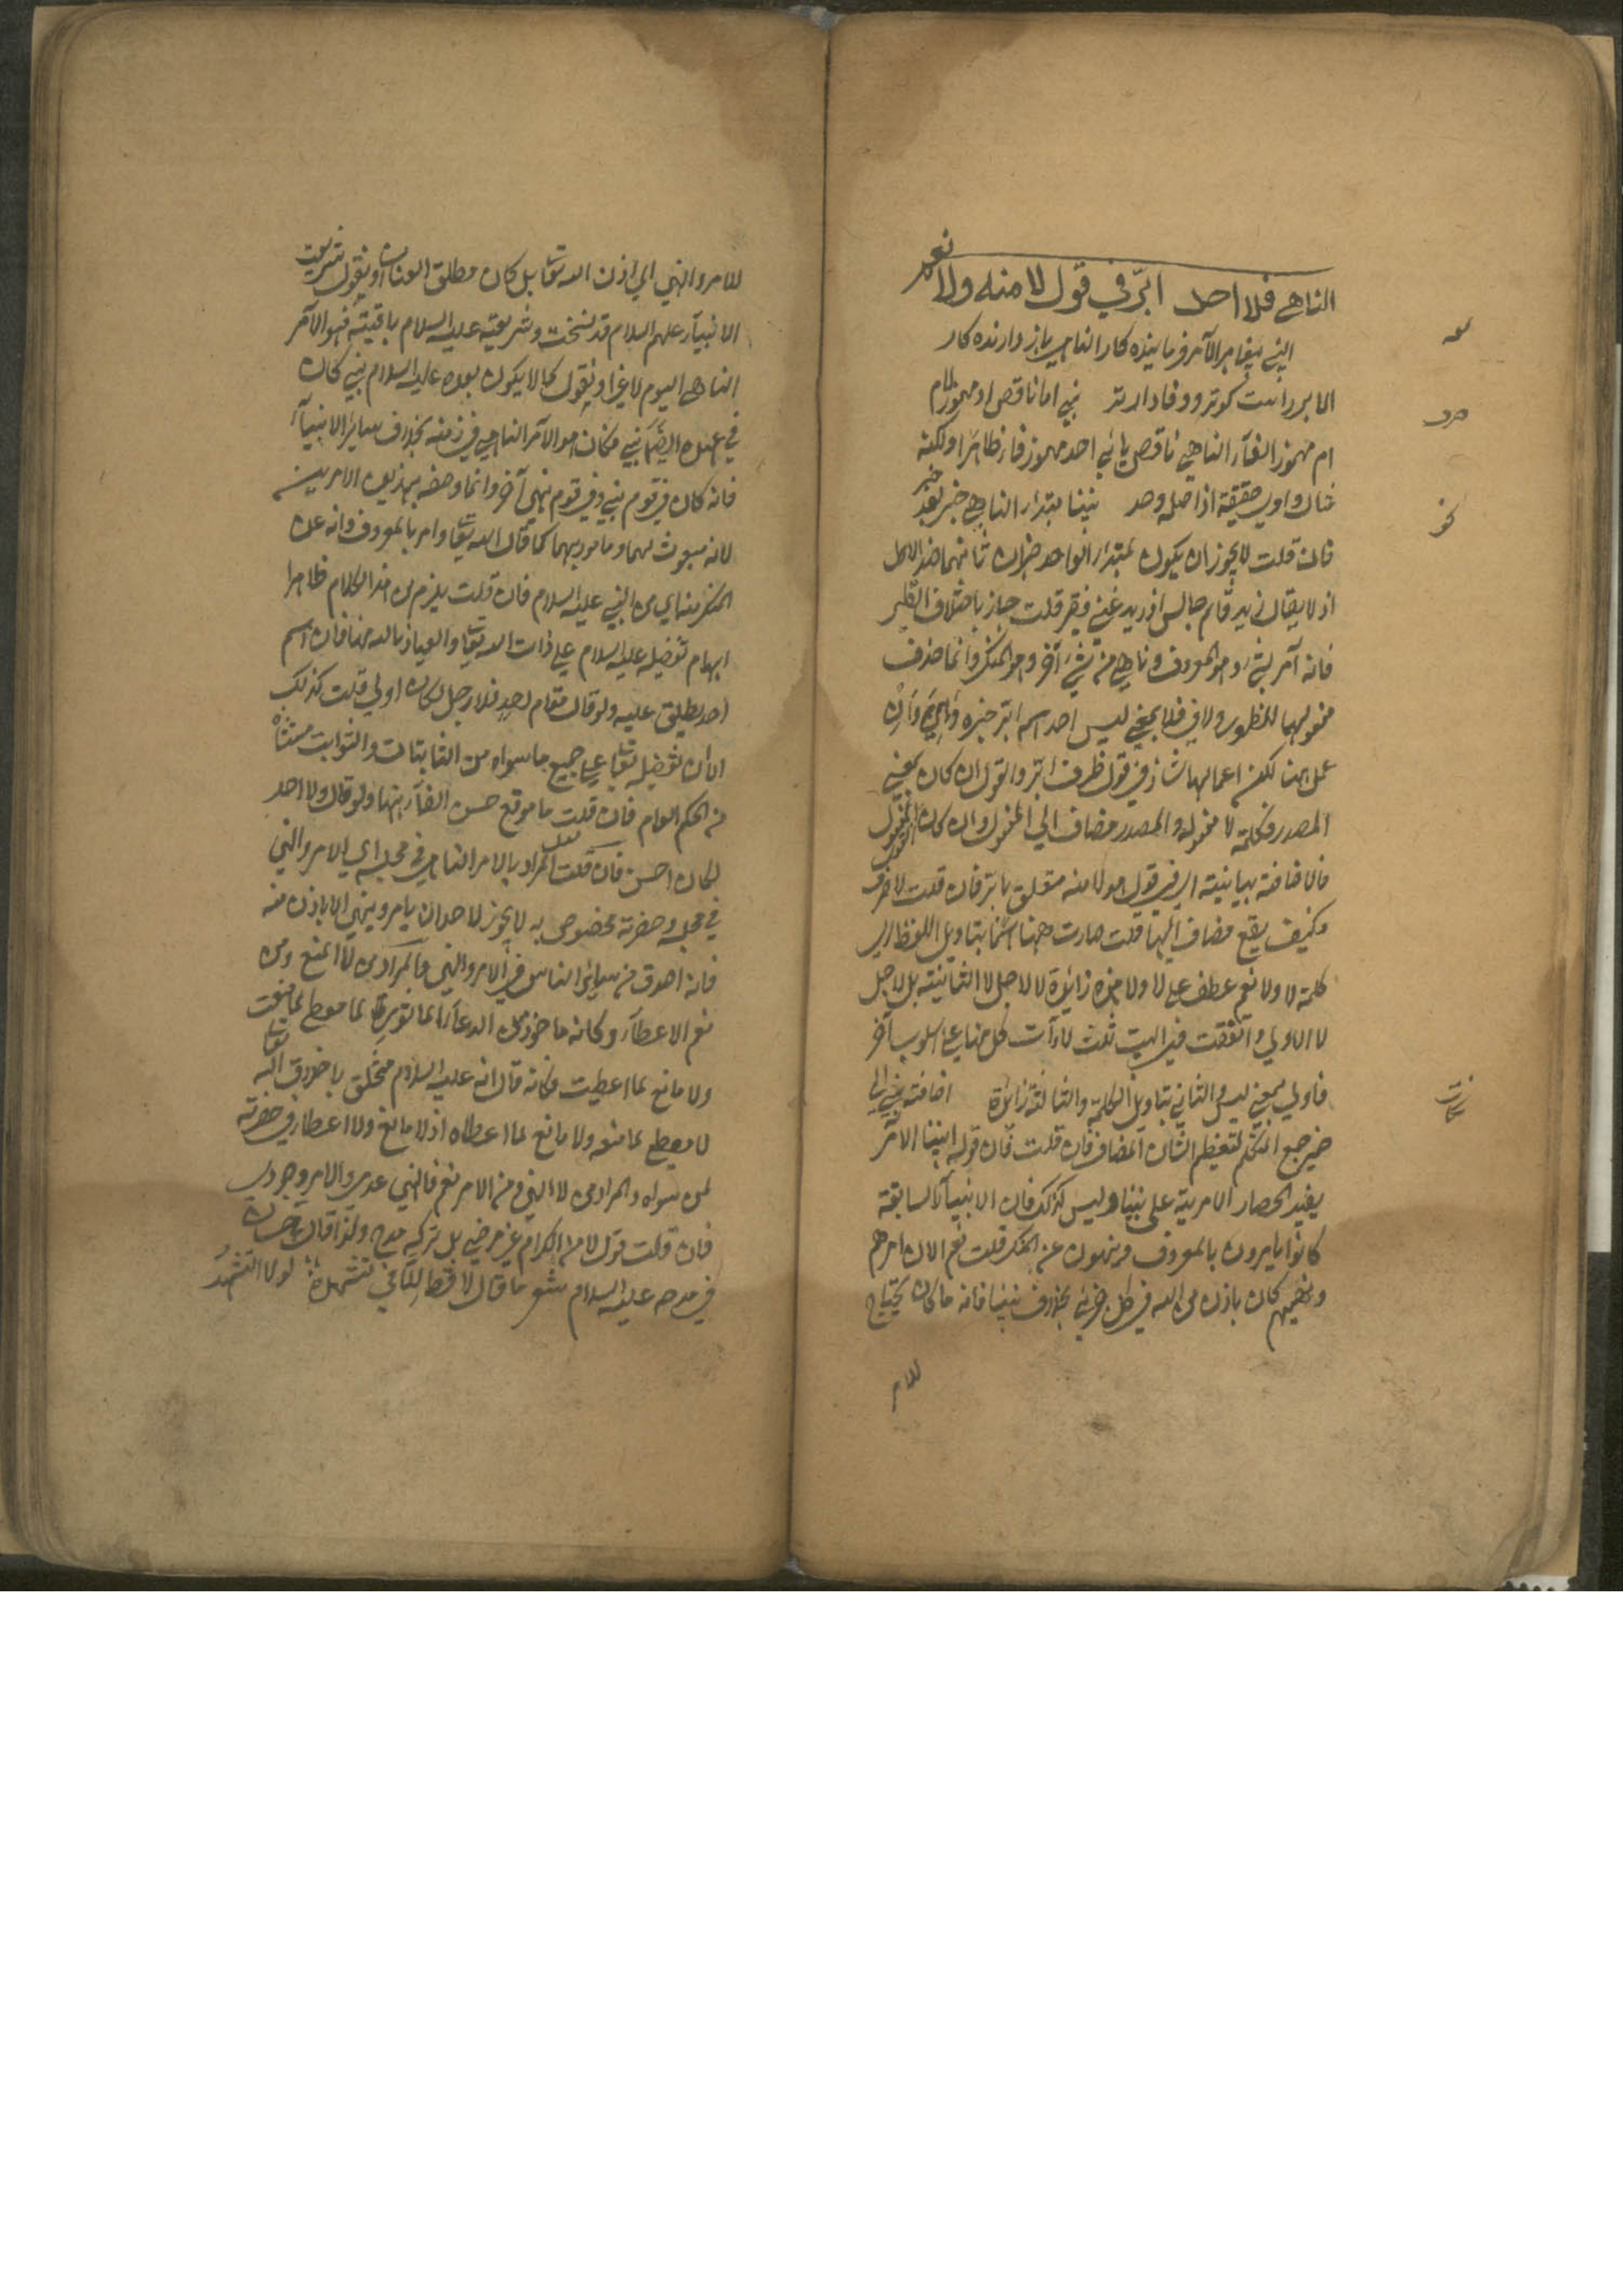 الناهي فلا احد ابرّ في قول لا منه ولا نعم
لغة
النبي پيغامبر الآمر فرماينده كار الناهي باز دارنده كار
الابر راست كوتر ووفادارتر نبي اما ناقص او مهموز لام
صرف
ام مهموز الفاء الناهي ناقص يائي احد مهموز فا ظاهرا ولكنه
مثال واوي حقيقة اذ اصله وحد نبينا مبتداء الناهي خبر بعد خبر
نحو
فان قلت لا يجوز ان يكون لمبتداء الواحد خبران ثانيهما ضد الاول
اذ لا يقال زيد قائم جالس او زيد غني فقير قلت جاز باختلاف
فانه آمر بشيء وهو المعروف وناهي من شيء آخر وهو المنكر وانما حذف
مفعوليهما للظهور ولا في فلا بمعنى ليس احد اسمه ابر خبره
عمل ليس لكن اعمالها شاذ في قول ظرف ابر والقول ان كان بمعنى
المصدر فكلمة لا مفعوله والمصدر مضاف الى المفعول وان كان بمعنى المقول
فالاضافة بيانية اي في قول هو لا منه متعلق بابر فان قلت لا حرف
وكيف يقع مضاف اليها قلت صارت ههنا اسما بتاويل اللفظ اي
كلمة لا ولا نعم عطف على لا ولا هذه زائدة لا لاجل لا الثانية بل لاجل
لا الاولى واتفقت في البيت ثلث لاآت كل منها على اسلوب آخر
فاولى بمعنى ليس والثاني بتاويل الكلمة والثالثة زائدة اضافة نبي الى
ضمير جمع المتكلم لتعظيم الشان المضاف فان قلت فان قوله نبينا الامر
يفيد انحصار الامرية على نبينا وليس كذلك فان الانبياء السابقة
كانوا يامرون بالمعروف وينهون عن المنكر قلت نعم الا ان امرهم
ونهيهم كان باذن من الله في كل جزئي بخلاف نبينا فانه ما كان يحتاج
للام
للامر والنهي الى اذن الله تعا بل كان مطلق العنان او نقول شريعت
الانبياء عليهم السلام قد نسخت وشريعته عليه السلام باقية فهو الآمر
الناهي اليوم لا غير او نقول كما لا يكون بعده عليه السلام نبي كان
في عهده ايضا نبي فكان هو الآمر الناهي في زمنه بخلاف سائر الانبياء
فانه كان في قوم نبي وفي قوم نبي آخر وانما وصفه بهذين الامرين
لانه مبعوث لهما ومامور بهما كما قال الله تعا وامر بالمعروف وانه عن
المنكر منه اي من النبي عليه السلام فان قلت يلزم من هذا الكلام ظاهرا
ابهام تفضيله عليه السلام على ذات الله تعا والعياذ بالله منها فان اسم
احد يطلق عليه ولو قال مقام احد فلا رجل لكان اولى قلت كذلك
الا ان تفضيله تعا على جميع ما سواه من الثابتات والثوابت مستثناة
من الحكم العام فان قلت ما موقع حسن الفاء ههنا ولو قال ولا احد
لكان احسن فان قلت المراد بالامر الناهي في محله اي الامر والنهي
في محله وحضرته مخصوص به لا يجوز لاحد ان يامر وينهي الا باذن منه
فانه اصدق من سائر الناس في الامر والنهي والمراد من لا المنع ومن
نعم الاعطاء وكانه ماخوذ من الدعاء الماثورة لا معطي لما منعت
ولا مانع لما اعطيت وكانه قال انه عليه السلام متخلق باخلاق الله تعا
لا معطي لما منعه ولا مانع لما اعطاه اذ لا مانع ولا اعطاء في حضرته
لمن سواه والمراد من لا النهي ومن الامر نعم فالنهي عدمي والامر وجودي
فان قلت قول لا من الكرام غير مرضي بل تركه مدح ولذا قال حسان
في مدحه عليه السلام شعر ما قال لا قط الا في تشهده لولا التشهد